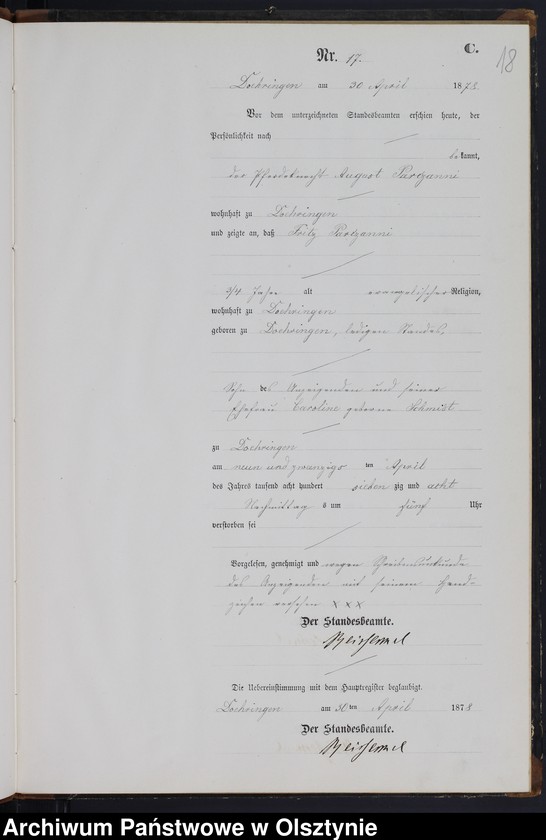 C.
18
Nr. 17.
Döhringen am 30 April 1878
Vor dem unterzeichneten Standesbeamten erschien heute, der
Persönlichkeit nach
bekannt,
der Pferdeknecht August Parczanni
wohnhaft zu Döhringen
und zeigte an, daß Fritz Parczanni
3/4 Jahre alt evangelischer Religion,
wohnhaft zu Döhringen
geboren zu Döhringen, ledigen Standes,
Sohn des Anzeigenden und seiner
Ehefrau Caroline geborne Schmidt
zu Döhringen
am neun und zwanzigs ten April
des Jahres tausend acht hundert sieben zig und acht
Nachmittag s um fünf Uhr
verstorben sei
Vorgelesen, genehmigt und wegen Schreibensunkunde
des Anzeigenden mit seinem Hand-
zeichen versehen XXX
Der Standesbeamte.
Die Uebereinstimmung mit dem Hauptregister beglaubigt.
Döhringen am 30 ten April 1878
Der Standesbeamte.
Archiwum Państwowe w Olsztynie